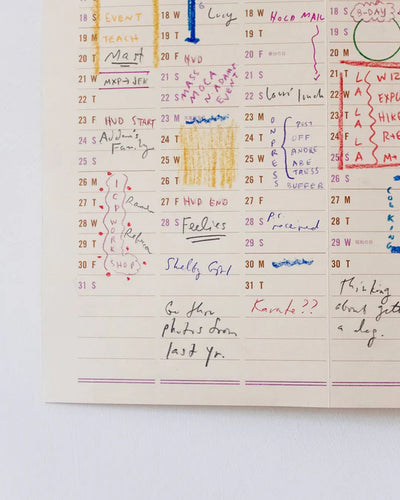 18 S EVENT
19 M TEACH
20 T Matt
21 W MXP → JFK
22 T
23 F HVD START
24 S Addum's
Family
25 S
26 M I
C
27 T P
W
28 W O
29 T R
K
30 F SHOP
31 S
18 W Lucy
19 T
20 F HVD
21 S MASS
MOCA
22 S N ADAMS
EVENT
23 M
24 T
25 W
26 T
27 F HVD END
28 S Feelies
Shelby Girl
Go thru
photos from
last yr.
18 W HOLD MAIL
19 T
20 F
21 S
22 S Louis' lunch
23 M O
N
24 T P
R
25 W E
26 T S
S
POST
OFF
ANDRE
ABE
TRESS
BUFFER
27 F
28 S P.C.
received
29 S
30 M
31 T
Karate??
18 S B-DAY
19 S
20 M
21 T WIZ
22 W EXPL
23 T HIKE
24 F R+E
25 S M+
L
A
L
A
26 S
27 M
28 T
29 W
30 T
COL
KING
Thinking
about gett
a dog.